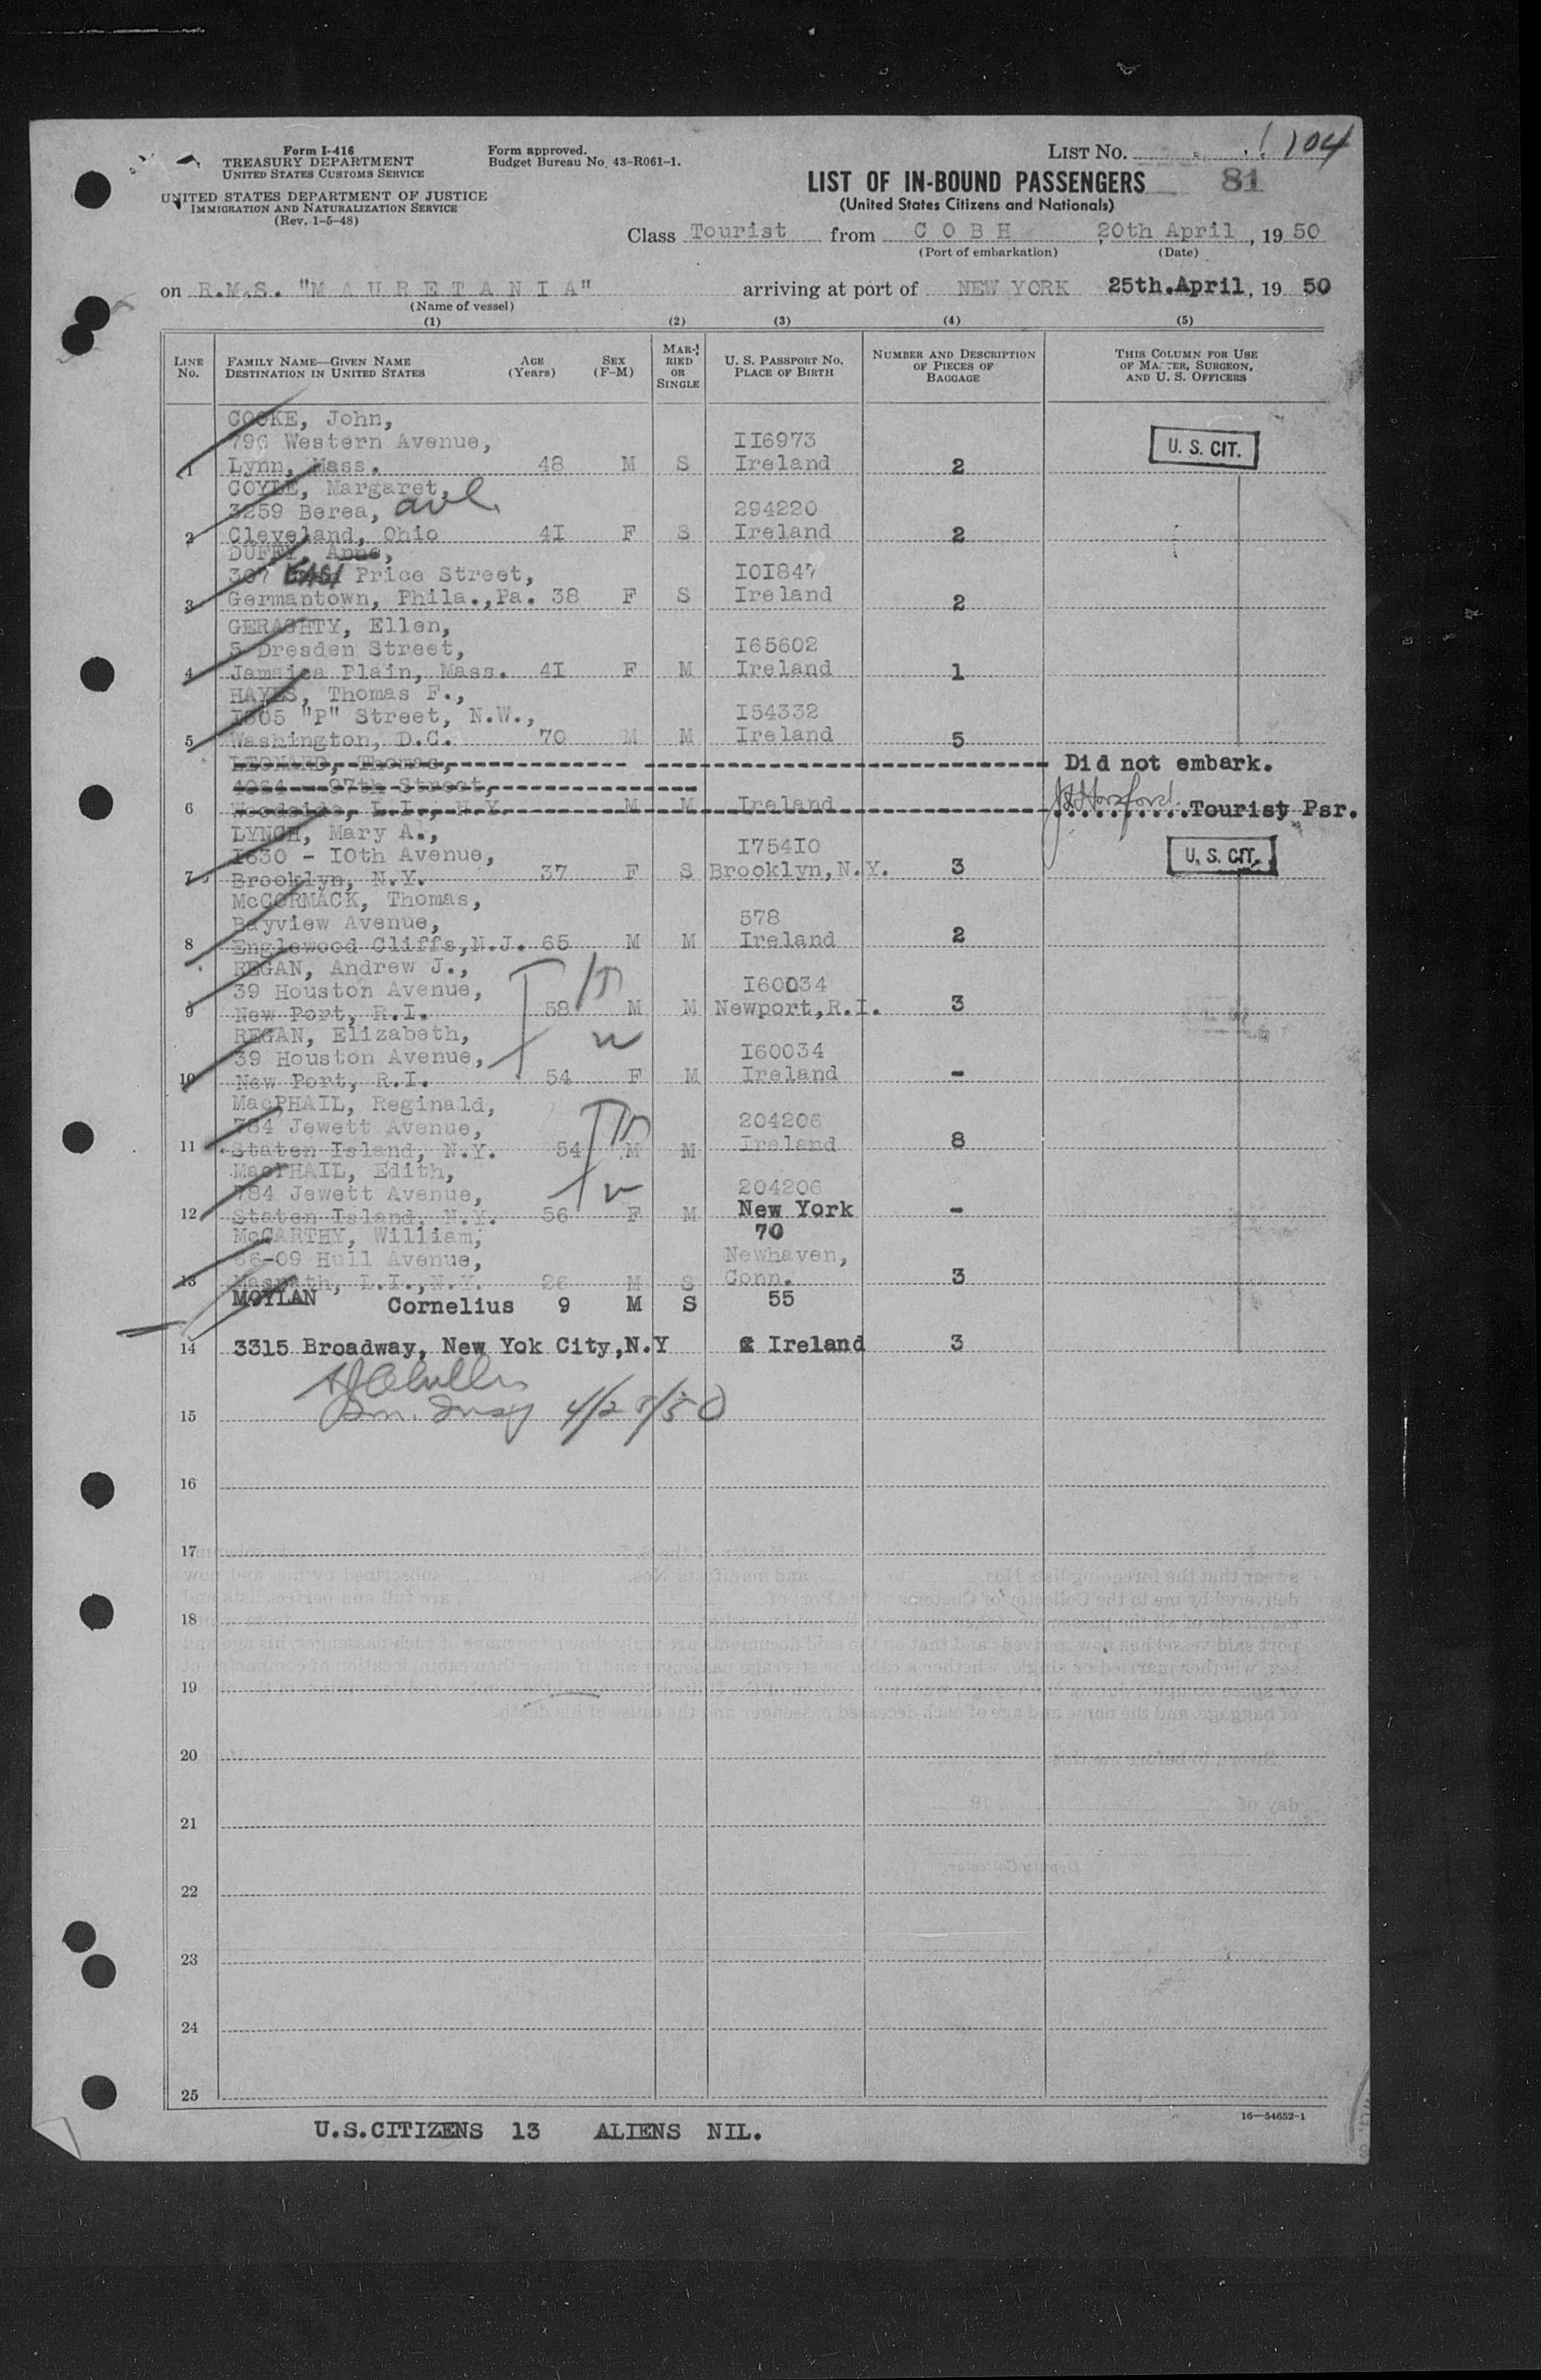 Form I-416
TREASURY DEPARTMENT
UNITED STATES CUSTOMS SERVICE
UNITED STATES DEPARTMENT OF JUSTICE
IMMIGRATION AND NATURALIZATION SERVICE
(Rev. 1-5-48)
Form approved.
Budget Bureau No. 43-R061-1.
LIST No. 104
81
LIST OF IN-BOUND PASSENGERS
(United States Citizens and Nationals)
Class Tourist from C O B H 20th April, 19 50
(Port of embarkation) (Date)
on R.M.S. "M A U R E T A N I A" arriving at port of NEW YORK 25th.April, 19 50
(Name of vessel)
(1) (2) (3) (4) (5)
LINE No. FAMILY NAME—GIVEN NAME DESTINATION IN UNITED STATES AGE (Years) SEX (F-M) MARRIED OR SINGLE U. S. PASSPORT No. PLACE OF BIRTH NUMBER AND DESCRIPTION OF PIECES OF BAGGAGE THIS COLUMN FOR USE OF MASTER, SURGEON, AND U. S. OFFICERS
COOKE, John,
796 Western Avenue, II6973 U. S. CIT.
1 Lynn, Mass. 48 M S Ireland 2
COYLE, Margaret,
3259 Berea, ave. 294220
2 Cleveland, Ohio 4I F S Ireland 2
DUFFY, Anne,
307 EAST Price Street, I0I847
3 Germantown, Phila.,Pa. 38 F S Ireland 2
GERAGHTY, Ellen,
5 Dresden Street, I65602
4 Jamaica Plain, Mass. 4I F M Ireland 1
HAYES, Thomas F.,
I305 "P" Street, N.W., I54332
5 Washington, D.C. 70 M M Ireland 5
LEONARD, Thomas, Did not embark.
4064 - 97th Street,
6 Woodside, L.I., N.Y. M M Ireland Tourist Psr.
LYNCH, Mary A.,
I630 - I0th Avenue, I754I0 U. S. CIT.
7 Brooklyn, N.Y. 37 F S Brooklyn,N.Y. 3
McCORMACK, Thomas,
Bayview Avenue, 578
8 Englewood Cliffs,N.J. 65 M M Ireland 2
REGAN, Andrew J.,
39 Houston Avenue, I60034
9 New Port, R.I. 58 M M Newport,R.I. 3
REGAN, Elizabeth,
39 Houston Avenue, I60034
10 New Port, R.I. 54 F M Ireland -
MacPHAIL, Reginald,
784 Jewett Avenue, 204206
11 Staten Island, N.Y. 54 M M Ireland 8
MacPHAIL, Edith,
784 Jewett Avenue, 204206
12 Staten Island, N.Y. 56 F M New York -
McCARTHY, William, 70
66-09 Hull Avenue, Newhaven,
13 Maspath, L.I.,N.Y. 26 M S Conn. 3
MOYLAN Cornelius 9 M S 55
14 3315 Broadway, New Yok City,N.Y Ireland 3
Im. Insp 4/25/50
15
16
17
18
19
20
21
22
23
24
25
16—54652-1
U.S.CITIZENS 13 ALIENS NIL.